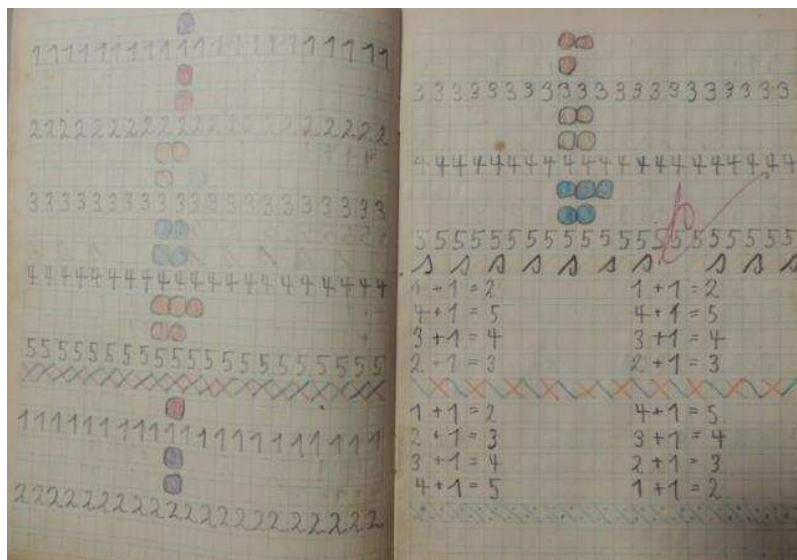 11111111111111111111
22222222222222222222
33333333333333333333
44444444444444444444
55555555555555555555
11111111111111111111
22222222222222222222
333333333333333333333
444444444444444444444
555555555555555555555
1+1=2 1+1=2
4+1=5 4+1=5
3+1=4 3+1=4
2+1=3 2+1=3
1+1=2 4+1=5
2+1=3 3+1=4
3+1=4 2+1=3
4+1=5 1+1=2